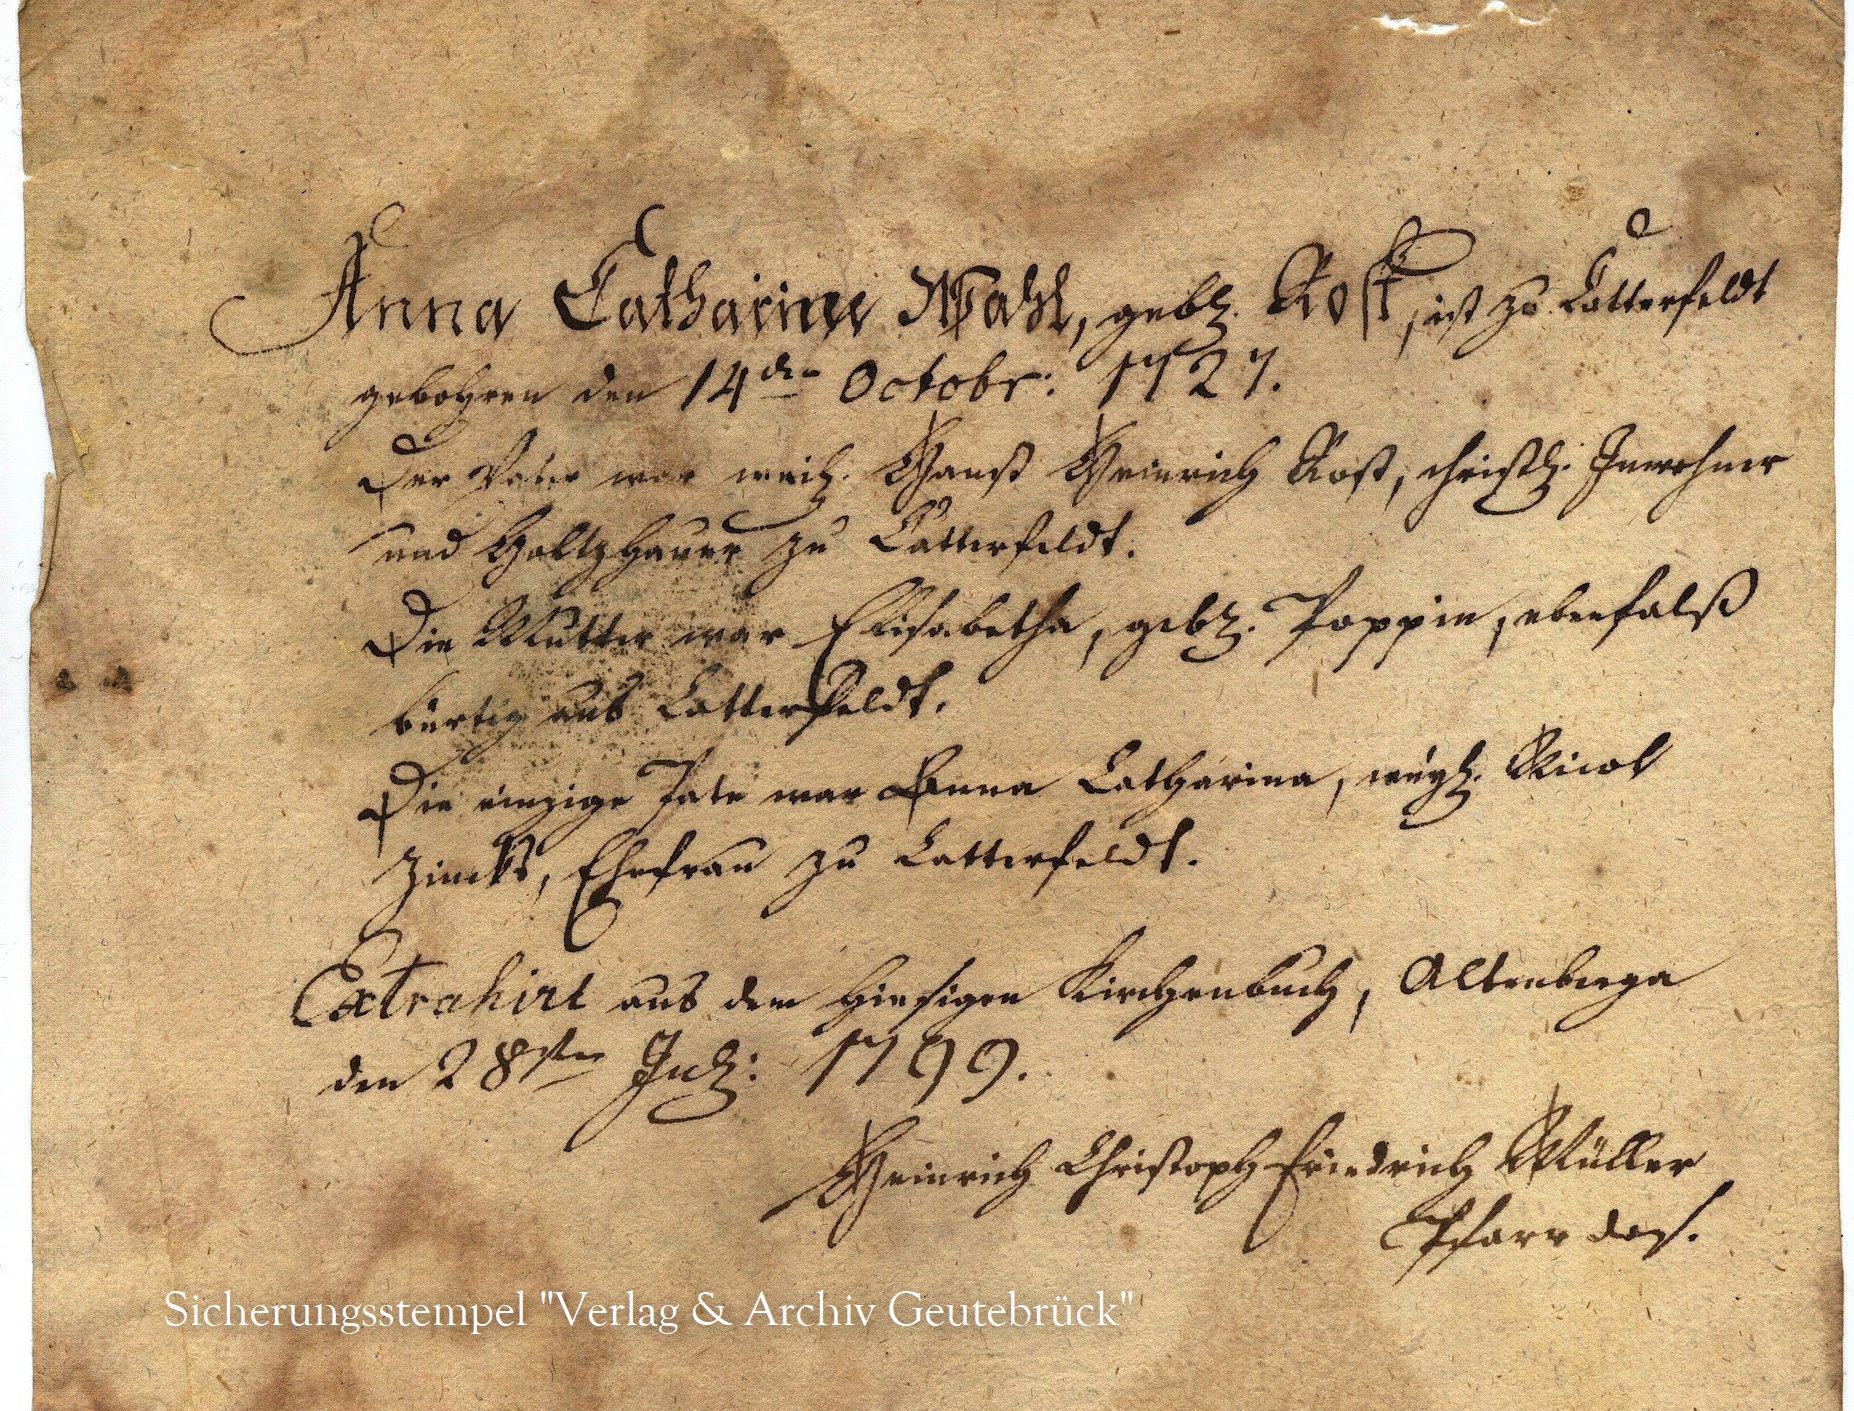 Anna Catharina Wahl, gebh. Rost, ist zu Catterfeldt
gebohren den 14den Octobr: 1727.
Der Vater war weil. Hanß Heinrich Rost, christl. Inwohner
und Holtzhauer zu Catterfeldt.
Die Mutter war Elisabetha, gebh. Poppin, ebenfalß
bürtig aus Catterfeldt.
Die einzige Pate war Anna Catharina, Nicol
Zincks, Ehefrau zu Catterfeldt.
Extrahirt aus dem hiesigen Kirchenbuch, Altenberga
den 28sten Jul: 1799.
Heinrich Christoph Friedrich Müller
Pfarr das.
Sicherungsstempel "Verlag & Archiv Geutebrück"